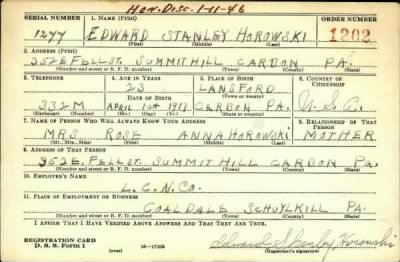 Hon. Disc. 1-11-46
SERIAL NUMBER 1. NAME (Print) ORDER NUMBER
1277 EDWARD STANLEY HOROWSKI 1202
(First) (Middle) (Last)
2. ADDRESS (Print)
352 E FELL ST. SUMMIT HILL CARBON PA.
(Number and street or R. F. D. number) (Town) (County) (State)
3. TELEPHONE 4. AGE IN YEARS 5. PLACE OF BIRTH 6. COUNTRY OF CITIZENSHIP
23 LANSFORD
DATE OF BIRTH (Town or county)
332M APRIL 12th 1917 CARBON PA. U. S. A.
(Exchange) (Number) (Mo.) (Day) (Yr.) (State or country)
7. NAME OF PERSON WHO WILL ALWAYS KNOW YOUR ADDRESS 8. RELATIONSHIP OF THAT PERSON
MRS. ROSE ANNA HOROWSKI MOTHER
(Mr., Mrs., Miss) (First) (Middle) (Last)
9. ADDRESS OF THAT PERSON
352 E. FELL ST. SUMMIT HILL CARBON PA.
(Number and street or R. F. D. number) (Town) (County) (State)
10. EMPLOYER'S NAME
L. C. N. CO.
11. PLACE OF EMPLOYMENT OR BUSINESS
COALDALE SCHUYLKILL PA.
(Number and street or R. F. D. number) (Town) (County) (State)
I AFFIRM THAT I HAVE VERIFIED ABOVE ANSWERS AND THAT THEY ARE TRUE.
REGISTRATION CARD
D. S. S. Form 1 16—17105 Edward Stanley Horowski
(over) (Registrant's signature)